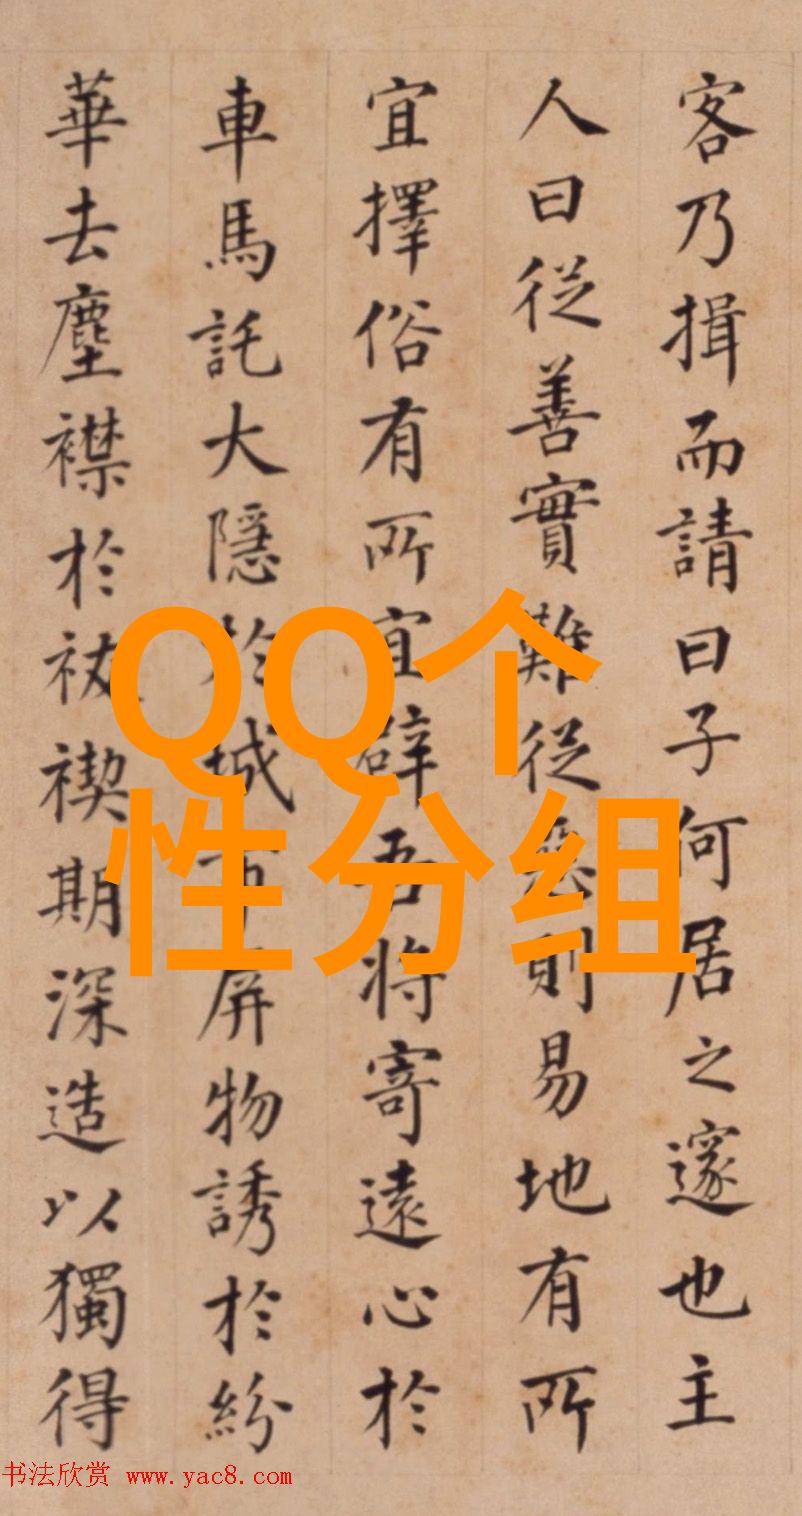 客乃揖而請曰子何居之邃也主
人曰従善實難従惡則易地有所
宜擇俗有所宜辟吾将寄遠心於
車馬託大隱於城市屏物誘於紛
華去塵襟於祓禊期深造以獨得
QQ个
性分组
书法欣赏 www.yac8.com